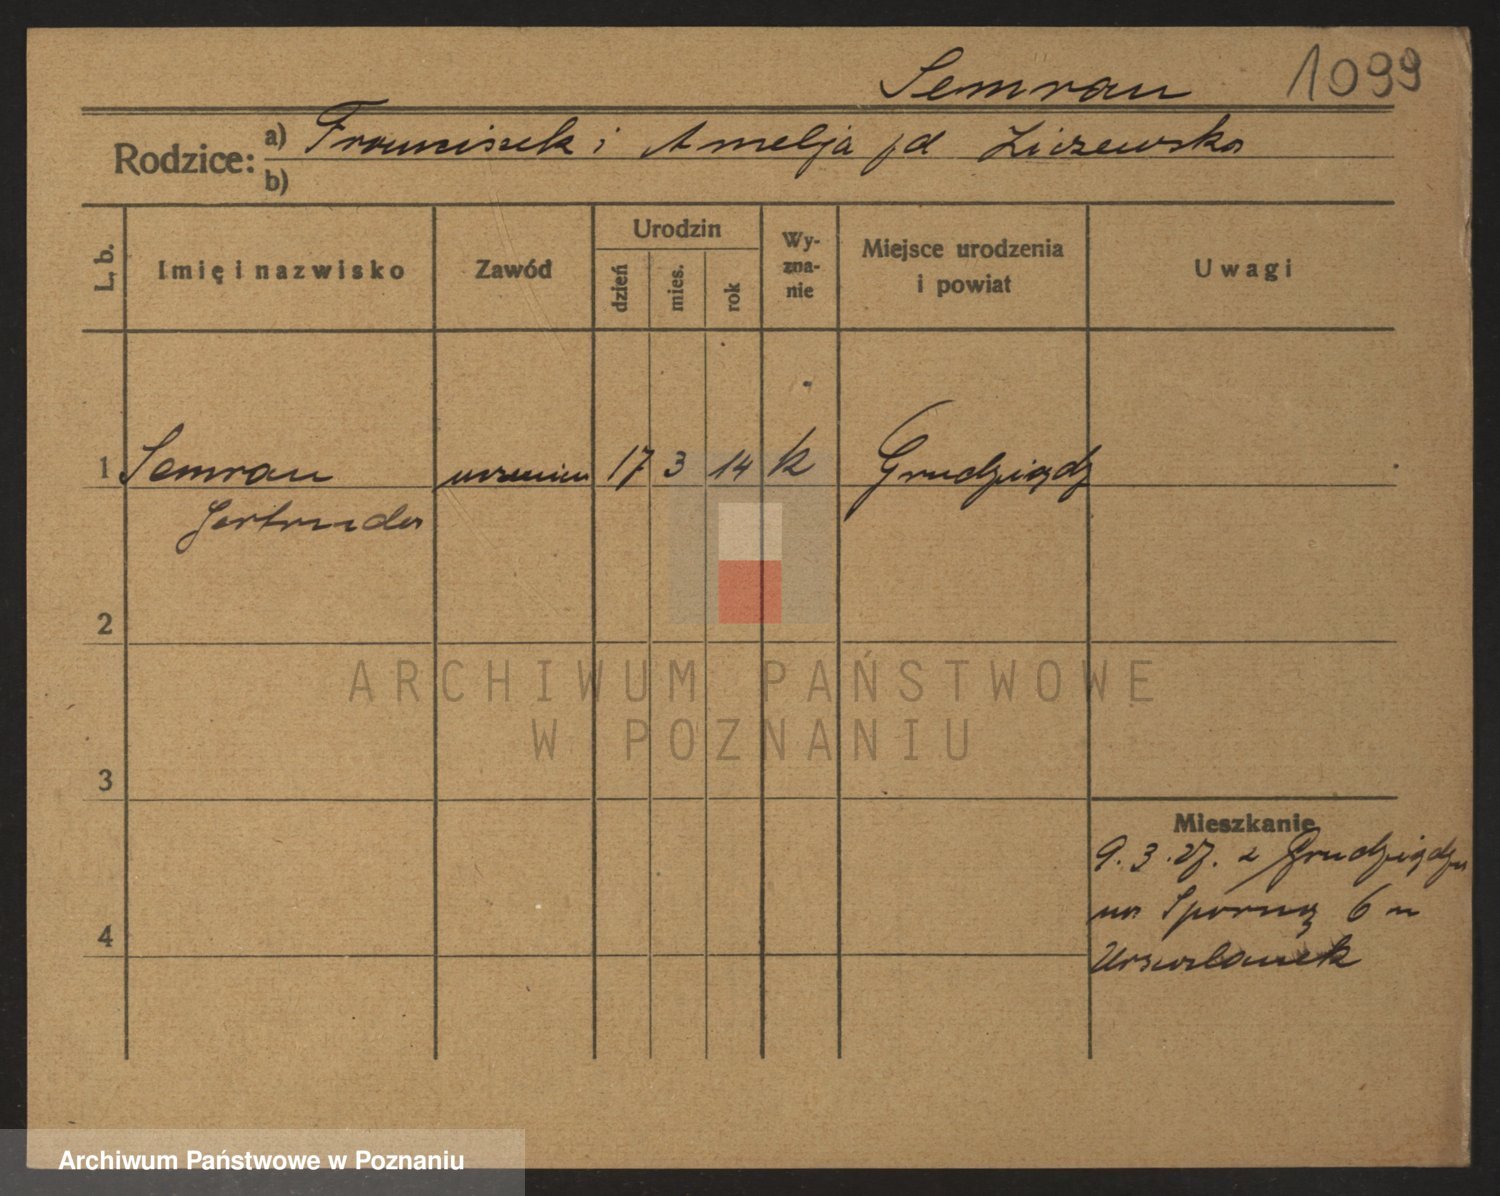 Semrau 1099
Rodzice: a) Franciszek i Amelja z d Liczewska
b)
L. b. Imię i nazwisko Zawód Urodzin dzień mies. rok Wy-zna-nie Miejsce urodzenia i powiat Uwagi
1 Semrau uczenica 17 3 14 k Grudziądz
Gertruda
2
ARCHIWUM PAŃSTWOWE
W POZNANIU
3
Mieszkanie
9. 3. 27. z Grudziądza
na Sporną 6 u
4
Urszulanek
Archiwum Państwowe w Poznaniu